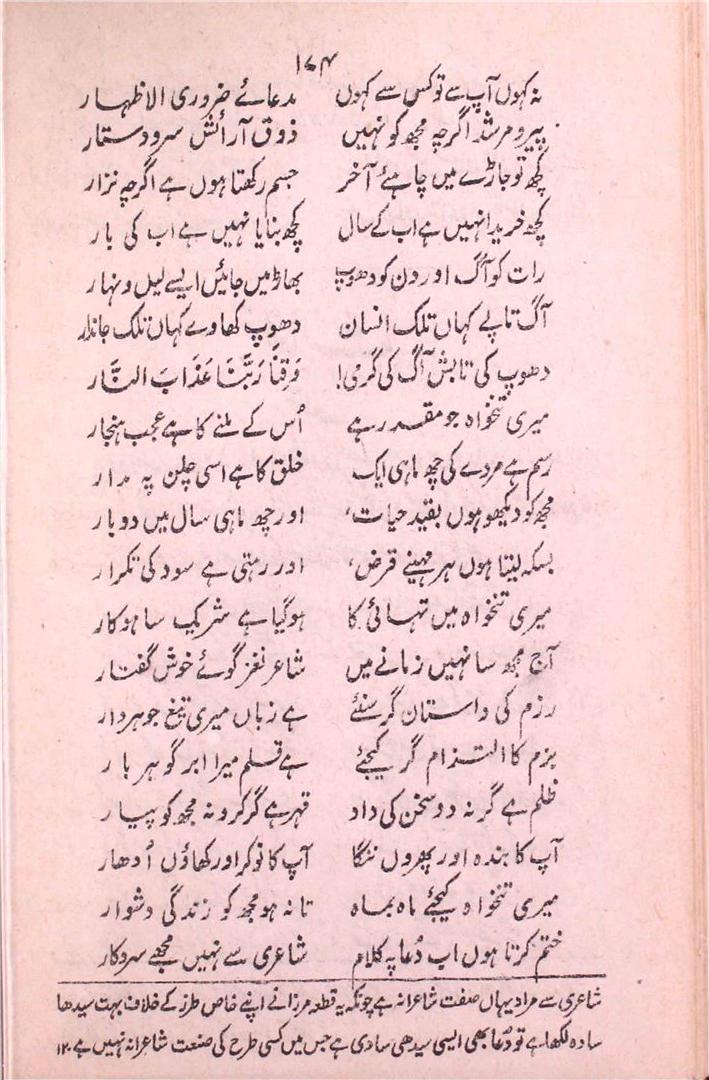 ۱۷۴
نہ کہوں آپ سے تو کس سے کہوں مدعائے ضروری الاظہار
پیر و مرشد اگرچہ مجھ کو نہیں ذوق آرائش سر و دستار
کچھ تو جاڑے میں چاہئے آخر جسم رکھتا ہوں ہے اگرچہ نزار
کچھ خریدا نہیں ہے اب کے سال کچھ بنایا نہیں ہے اب کی بار
رات کو آگ اور دن کو دھوپ بھاڑ میں جائیں ایسے لیل و نہار
آگ تاپے کہاں تلک انسان دھوپ کھاوے کہاں تلک جاندار
دھوپ کی تابش آگ کی گرمی! وَقِنَا رَبَّنَا عَذَابَ النَّار
میری تنخواہ جو مقرر ہے اُس کے ملنے کا ہے عجب ہنجار
رسم ہے مردے کی چھ ماہی ایک خلق کا ہے اسی چلن پہ مدار
مجھ کو دیکھو ہوں بقید حیات، اور چھ ماہی سال میں دو بار
بسکہ لیتا ہوں ہر مہینے قرض، اور رہتی ہے سود کی تکرار
میری تنخواہ میں تہائی کا ہوگیا ہے شریک ساہوکار
آج مجھ سا نہیں زمانے میں شاعر نغز گوئے خوش گفتار
رزم کی داستان گر سنئے ہے زباں میری تیغ جوہردار
بزم کا التزام گر کیجئے ہے قلم میرا ابر گوہر بار
ظلم ہے گر نہ دو سخن کی داد قہر ہے گر کرو نہ مجھ کو پیار
آپ کا بندہ اور پھروں ننگا آپ کا نوکر اور کھاؤں اُدھار
میری تنخواہ کیجئے ماہ بماہ تا نہ ہو مجھ کو زندگی دشوار
ختم کرتا ہوں اب دُعا پہ کلام شاعری سے نہیں مجھے سروکار
شاعری سے مراد یہاں صفت شاعرانہ ہے چونکہ یہ قطعہ مرزا نے اپنے خاص طرز کے خلاف بہت سیدھا
سادہ لکھا ہے تو دُعا بھی ایسی سیدھی سادی ہے جس میں کسی طرح کی صنعت شاعرانہ نہیں ہے ۱۲۰